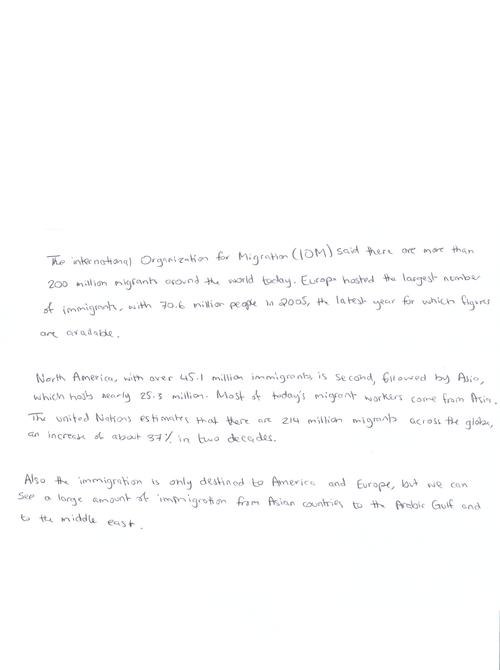 The international Organization for Migration (IOM) said there are more than
200 million migrants around the world today. Europe hosted the largest number
of immigrants, with 70.6 million people in 2005, the latest year for which figures
are available.
North America, with over 45.1 million immigrants is second, followed by Asia,
which hosts nearly 25.3 million. Most of today's migrant workers come from Asia.
The united Nations estimates that there are 214 million migrants across the globe,
an increase of about 37% in two decades.
Also the immigration is only destined to America and Europe, but we can
see a large amount of immigration from Asian countries to the Arabic Gulf and
to the middle east.